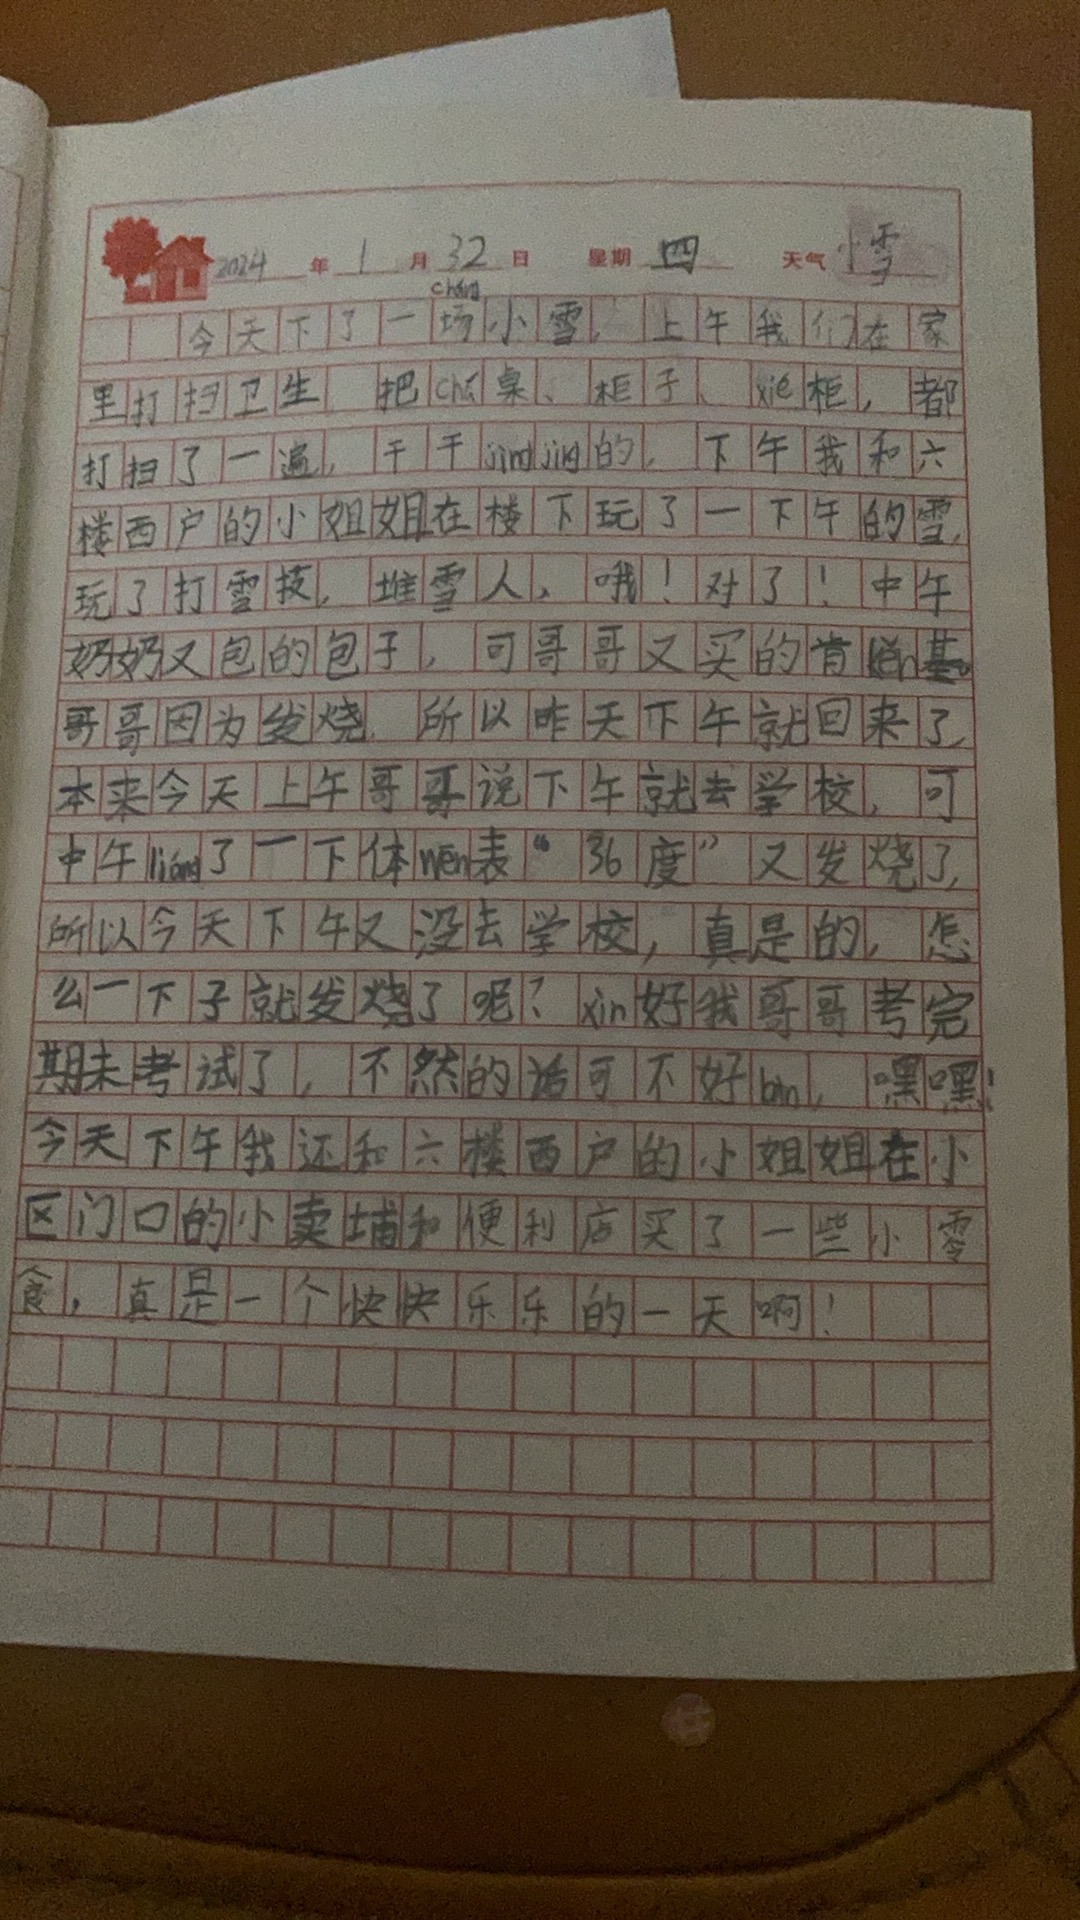 2024 年 1 月 32 日 星期 四 天气 小雪
chǎng
今天下了一场小雪，上午我们在家
里打扫卫生，把chá桌、柜子、xié柜，都
打扫了一遍，干干jìngjìng的，下午我和六
楼西户的小姐姐在楼下玩了一下午的雪，
玩了打雪技，堆雪人，哦！对了！中午
奶奶又包的包子，可哥哥又买的肯 基。
哥哥因为发烧，所以昨天下午就回来了，
本来今天上午哥哥说下午就去学校，可
中午liáng了一下体wēn表“36度”又发烧了，
所以今天下午又没去学校，真是的，怎
么一下子就发烧了呢？xìn好我哥哥考完
期末考试了，不然的话可不好bàn，嘿嘿！
今天下午我还和六楼西户的小姐姐在小
区门口的小卖埔和便利店买了一些小零
食，真是一个快快乐乐的一天啊！